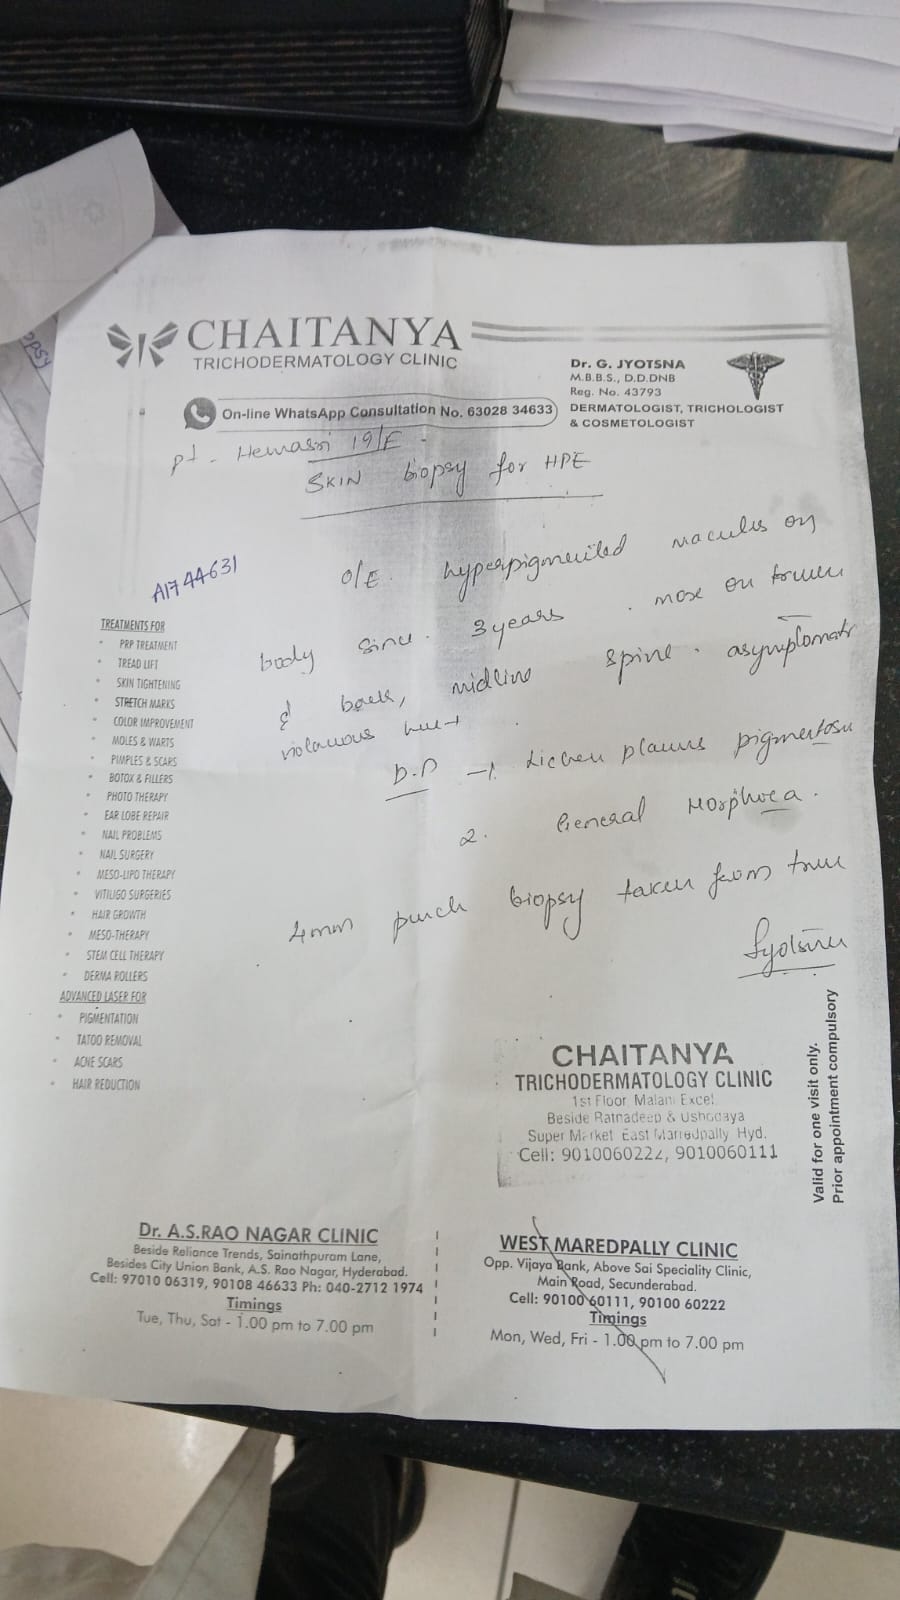 CHAITANYA
TRICHODERMATOLOGY CLINIC
Dr. G. JYOTSNA
M.B.B.S., D.D.DNB
Reg. No. 43793
DERMATOLOGIST, TRICHOLOGIST
& COSMETOLOGIST
On-line WhatsApp Consultation No. 63028 34633
pt - Hemasri 19/F -
SKIN biopsy for HPE
A1744631
O/E. hyperpigmented macules on
body since 3 years . more on
& back, midline spine . asymptomatic
violaceous hue +
D.D -1. Lichen planus pigmentosu
2. General Morphoea.
4mm punch biopsy taken from
Jyotsna
TREATMENTS FOR
PRP TREATMENT
TREAD LIFT
SKIN TIGHTENING
STRETCH MARKS
COLOR IMPROVEMENT
MOLES & WARTS
PIMPLES & SCARS
BOTOX & FILLERS
PHOTO THERAPY
EAR LOBE REPAIR
NAIL PROBLEMS
NAIL SURGERY
MESO-LIPO THERAPY
VITILIGO SURGERIES
HAIR GROWTH
MESO-THERAPY
STEM CELL THERAPY
DERMA ROLLERS
ADVANCED LASER FOR
PIGMENTATION
TATOO REMOVAL
ACNE SCARS
HAIR REDUCTION
CHAITANYA
TRICHODERMATOLOGY CLINIC
1st Floor Malani Excel
Beside Ratnadeep & Ushodaya
Super Market East Marredpally Hyd.
Cell: 9010060222, 9010060111
Valid for one visit only.
Prior appointment compulsory
Dr. A.S.RAO NAGAR CLINIC
Beside Reliance Trends, Sainathpuram Lane,
Besides City Union Bank, A.S. Rao Nagar, Hyderabad.
Cell: 97010 06319, 90108 46633 Ph: 040-2712 1974
Timings
Tue, Thu, Sat - 1.00 pm to 7.00 pm
WEST MAREDPALLY CLINIC
Opp. Vijaya Bank, Above Sai Speciality Clinic,
Main Road, Secunderabad.
Cell: 90100 60111, 90100 60222
Timings
Mon, Wed, Fri - 1.00 pm to 7.00 pm